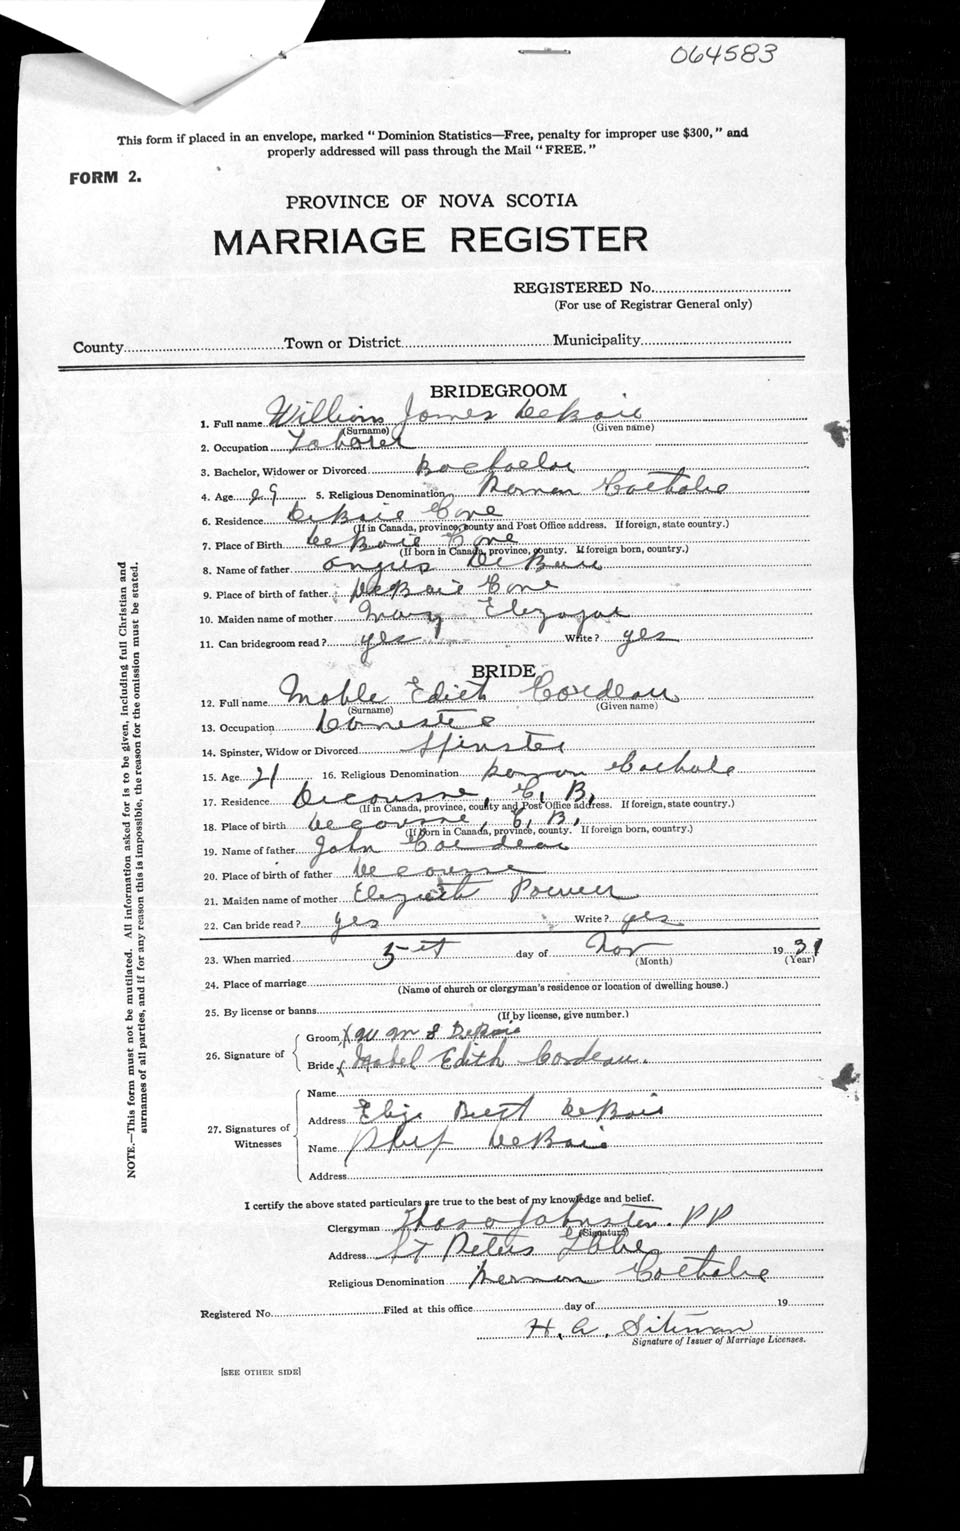 064583
This form if placed in an envelope, marked "Dominion Statistics—Free, penalty for improper use $300," and
properly addressed will pass through the Mail "FREE."
FORM 2.
PROVINCE OF NOVA SCOTIA
MARRIAGE REGISTER
REGISTERED No.
(For use of Registrar General only)
County Town or District Municipality
BRIDEGROOM
1. Full name William James DeBaie
(Surname) (Given name)
2. Occupation Laborer
3. Bachelor, Widower or Divorced Bachelor
4. Age 29 5. Religious Denomination Roman Catholic
6. Residence DeBaie Cove
(If in Canada, province, county and Post Office address. If foreign, state country.)
7. Place of Birth DeBaie Cove
(If born in Canada, province, county. If foreign born, country.)
8. Name of father Angus DeBaie
9. Place of birth of father DeBaie Cove
10. Maiden name of mother Mary
11. Can bridegroom read? yes Write? yes
BRIDE
12. Full name Mable Edith Cordeau
(Surname) (Given name)
13. Occupation Domestic
14. Spinster, Widow or Divorced Spinster
15. Age 21 16. Religious Denomination Roman Catholic
17. Residence Decousse, C. B,
(If in Canada, province, county and Post Office address. If foreign, state country.)
18. Place of birth Decousse, C, B,
(If Born in Canada, province, county. If foreign born, country.)
19. Name of father John Cordeau
20. Place of birth of father Decousse
21. Maiden name of mother
22. Can bride read? yes Write? yes
23. When married day of Nov 1931
(Month) (Year)
24. Place of marriage
(Name of church or clergyman's residence or location of dwelling house.)
25. By license or banns
(If by license, give number.)
26. Signature of
Groom X DeBaie
Bride X Mabel Edith Cordeau.
27. Signatures of Witnesses
Name
Address DeBaie
Name DeBaie
Address
I certify the above stated particulars are true to the best of my knowledge and belief.
Clergyman Johnston. PP
(Signature)
Address St Peters
Religious Denomination Roman Catholic
Registered No. Filed at this office day of 19
H. A. Siteman
Signature of Issuer of Marriage Licenses.
[SEE OTHER SIDE]
NOTE.—This form must not be mutilated. All information asked for is to be given, including full Christian and
surnames of all parties, and if for any reason this is impossible, the reason for the omission must be stated.